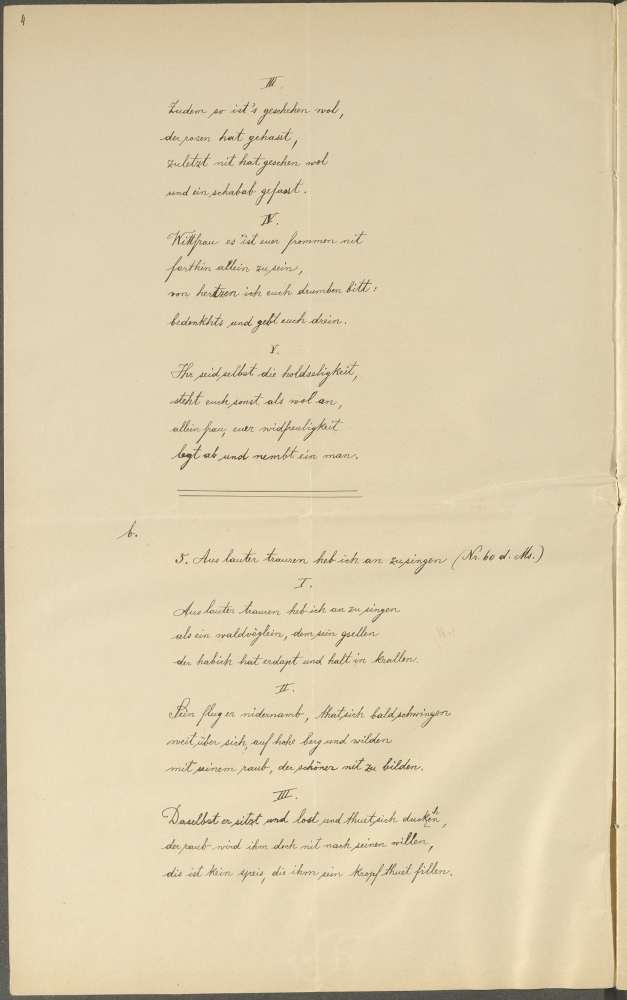 4
III.
Zudem so ist's geschehen wol,
der rosen hat gehasst,
zuletzt nit hat gesehen wol
und ein schabab gefasst.
IV.
Wittfrau es ist euer frommen nit
forthin allein zu sein,
von hertzen ich euch drumben bitt:
bedenkhts und gebt euch drein.
V.
Ihr seid selbst die holdseligkeit,
steht euch sonst als wol an,
allein frau, euer widfreuligkeit
legt ab und nembt ein man.
b.
5. Aus lauter trauren heb ich an zu singen (Nr. 60 d. Ms.)
I.
Aus lauter trauren heb ich an zu singen
als ein waldvöglein, dem sein gsellen
der habich hat erdapt und halt in krallen.
II.
Sein flug er nidernamb, that sich bald schwingen
weit über sich, auf hohe berg und wilden
mit seinem raub, der schöner nit zu bilden.
III.
Daselbst er sitzt und lost und thuet sich ducken,
der raub wird ihm doch nit nach seinen willen,
dis ist kein speis, die ihm sein kropf thuet fillen.